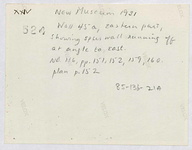 New Museum 1921
Wall 45a, eastern part,
showing spur wall running off
at angle to east.
NE 116, pp. 151, 152, 159, 160.
plan p. 152